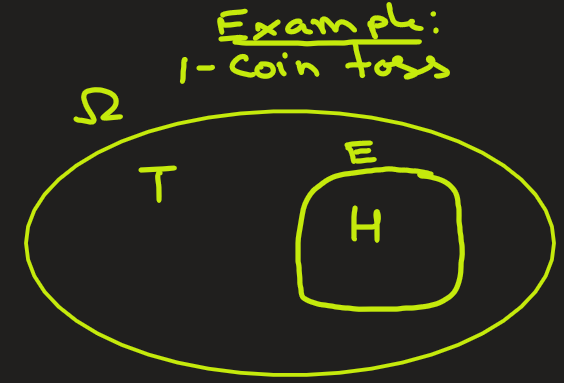 Example:
1-Coin toss
Ω
E
T
H